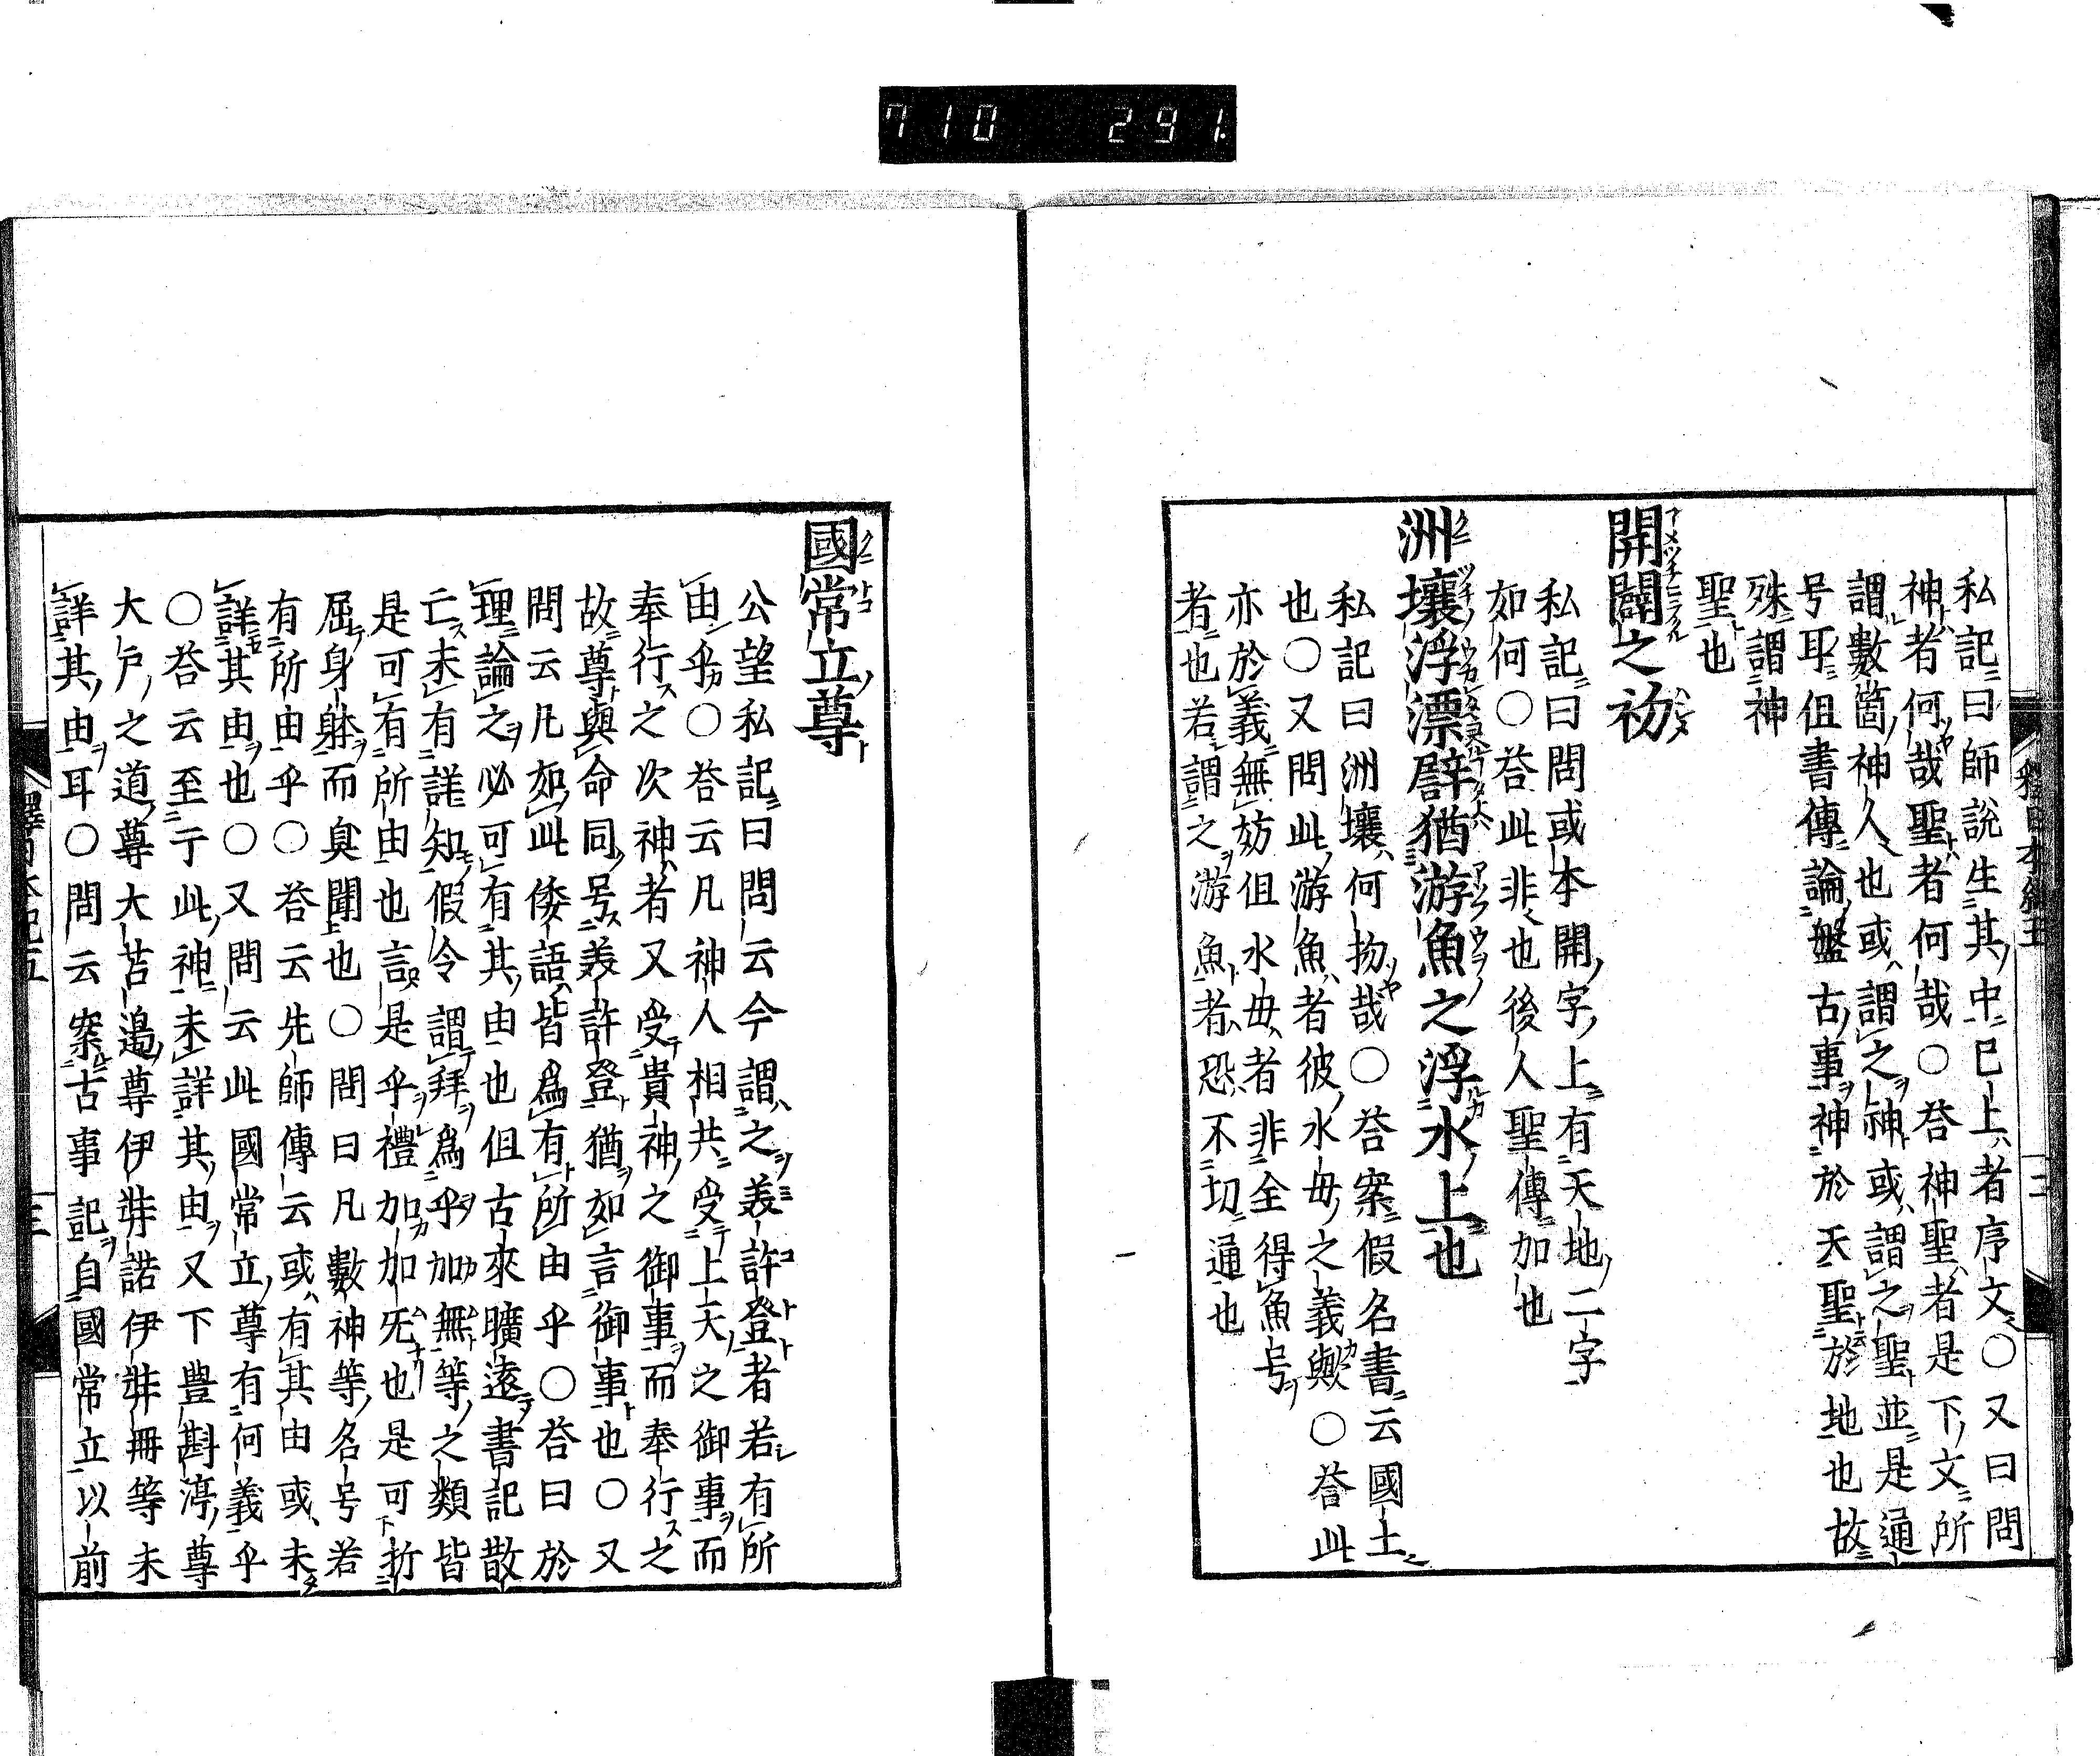 710 291.
私記曰師説生其中已上者序文〇又曰問
神者何哉聖者何哉〇荅神聖者是下文所
謂數箇神人也或謂之神或謂之聖並是通
号耳但書傳論盤古事神於天聖於地也故
殊謂神
聖也
開闢之初
私記曰問或本開字上有天地二字
如何〇荅此非也後人聖傳加也
洲壤浮漂譬猶游魚之浮水上也
私記曰洲壤何物哉〇荅案假名書云國土
也〇又問此游魚者彼水母之義歟〇荅此
亦於義無妨但水母者非全得魚号
者也若謂之游魚者恐不切通也
國常立尊
公望私記曰問云今謂之美許登者若有所
由乎〇荅云凡神人相共受上天之御事而
奉行之次神者又受貴神之御事而奉行之
故尊與命同号美許登猶如言御事也〇又
問云凡如此倭語皆為有所由乎〇荅曰於
理論之必可有其由也但古來曠遠書記散
亡未有詳知假令謂拜為乎加無等之類皆
是可有所由也言是乎禮加加旡也是可折
屈身躰而臭聞也〇問曰凡數神等名号若
有所由乎〇荅云先師傳云或有其由或未
詳其由也〇又問云此國常立尊有何義乎
〇荅云至于此神未詳其由又下豊斟渟尊
大戸之道尊大苫邉尊伊弉諾伊弉冊等未
詳其由耳〇問云案古事記自國常立以前